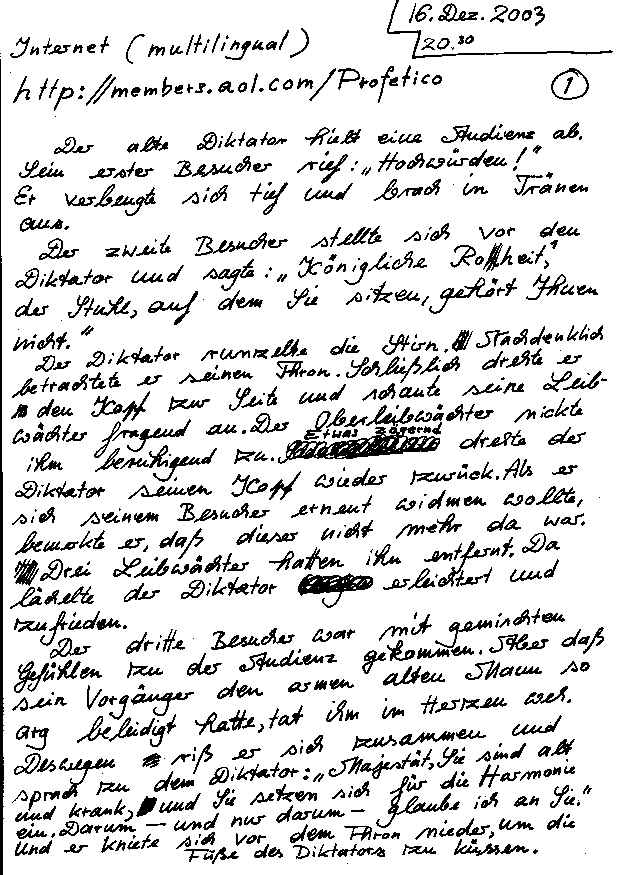 16. Dez. 2003
20.30
Internet (multilingual)
http://members.aol.com/Profetico
1
Der alte Diktator hielt eine Audienz ab.
Sein erster Besucher rief: „Hochwürden!"
Er verbeugte sich tief und brach in Tränen
aus.
Der zweite Besucher stellte sich vor den
Diktator und sagte: „Königliche Roheit,
der Stuhl, auf dem Sie sitzen, gehört Ihnen
nicht."
Der Diktator runzelte die Stirn. Nachdenklich
betrachtete er seinen Thron. Schließlich drehte er
den Kopf zur Seite und schaute seine Leib-
wächter fragend an. Der Oberleibwächter nickte
ihm beruhigend zu. Etwas zögernd drehte der
Diktator seinen Kopf wieder zurück. Als er
sich seinem Besucher erneut widmen wollte,
bemerkte er, daß dieser nicht mehr da war.
Drei Leibwächter hatten ihn entfernt. Da
lächelte der Diktator erleichtert und
zufrieden.
Der dritte Besucher war mit gemischten
Gefühlen zu der Audienz gekommen. Aber daß
sein Vorgänger den armen alten Mann so
arg beleidigt hatte, tat ihm im Herzen weh.
Deswegen riß er sich zusammen und
sprach zu dem Diktator: „Majestät, Sie sind alt
und krank, und Sie setzen sich für die Harmonie
ein. Darum – und nur darum – glaube ich an Sie."
Und er kniete sich vor dem Thron nieder, um die
Füße des Diktators zu küssen.